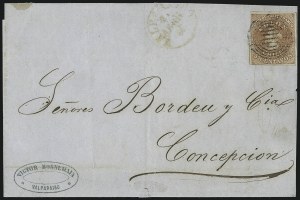 Señores Bordeu y Cia.
Concepcion
VICTOR
VALPARAISO